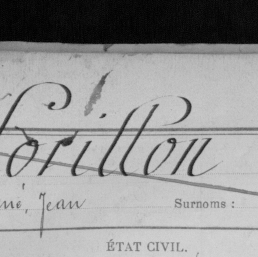 orillon
né, Jean Surnoms :
ÉTAT CIVIL.